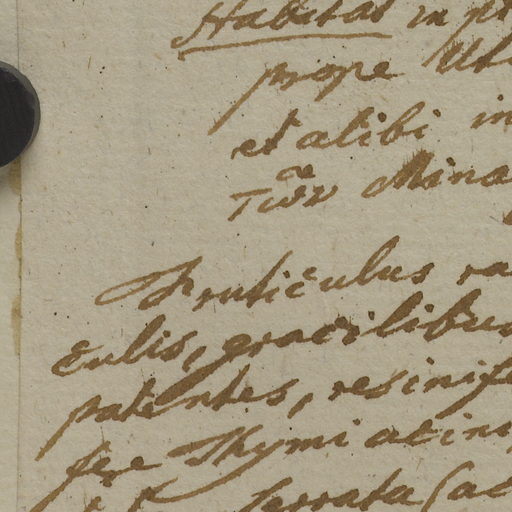 Habitat in
prope
et alibi in
Mina
Fruticulus ra
culis, gracilibus
patentes, resinife
fere Thymi acini
serrata (ac